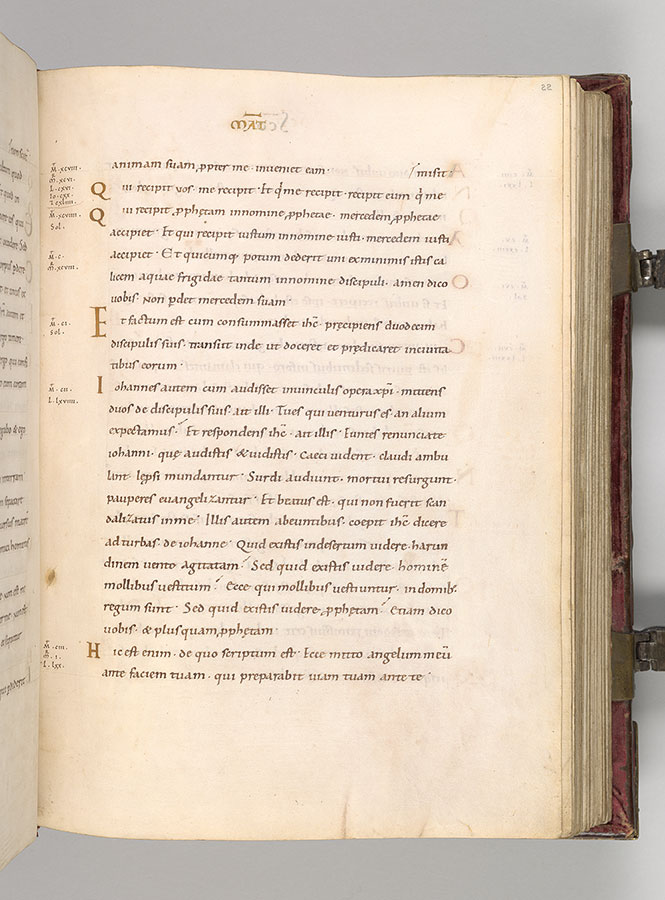 22
MAT
animam suam, ppter me · inveniet eam · / misit ·
Qui recipit vos · me recipit · Et q me recipit · recipit eum q me
Qui recipit, pphetam innomine, pphetae · mercedem, pphetae
accipiet · Et qui recipit iustum innomine iusti · mercedem iusti
accipiet · Et quicumque potum dederit uni exminimis istis ca
licem aquae frigidae tantum innomine discipuli · amen dico
uobis · Non pdet mercedem suam
Et factum est cum consummasset ihc · precipiens duodecim
discipulis suis · transiit inde ut doceret et predicaret incivita
tibus eorum ·
Iohannes autem cum audisset inuinculis opera xpi · mittens
duos de discipulis suis · ait illi · Tu es qui uenturus es · an alium
expectamus · Et respondens ihc · ait illis · Euntes renunciate
iohanni · que audistis & uidistis · Caeci uident · claudi ambu
lant · lepsi mundantur · Surdi audiunt · mortui resurgunt ·
pauperes euangelizantur · Et beatus est · qui non fuerit scan
dalizatus inme · Illis autem abeuntibus · coepit ihc dicere
ad turbas · de iohanne · Quid existis indesertum uidere · harun
dinem uento agitatam · Sed quid existis uidere · homine
mollibus uestitum · Ecce qui mollibus uestiuntur · in domib;
regum sunt · Sed quid existis uidere, pphetam · Etiam dico
uobis · & plusquam, pphetam
Hic est enim · de quo scriptum est · Ecce mitto angelum meu
ante faciem tuam · qui preparabit uiam tuam ante te ·
M · xcviii ·
M · xcvi ·
L · cxvi ·
Io · cxx ·
M · xcviiii ·
Sol ·
M · c ·
M · xcviii ·
M · ci ·
Sol ·
M · cii ·
L · lxviiii ·
M · ciii ·
M · i ·
L · lxx ·